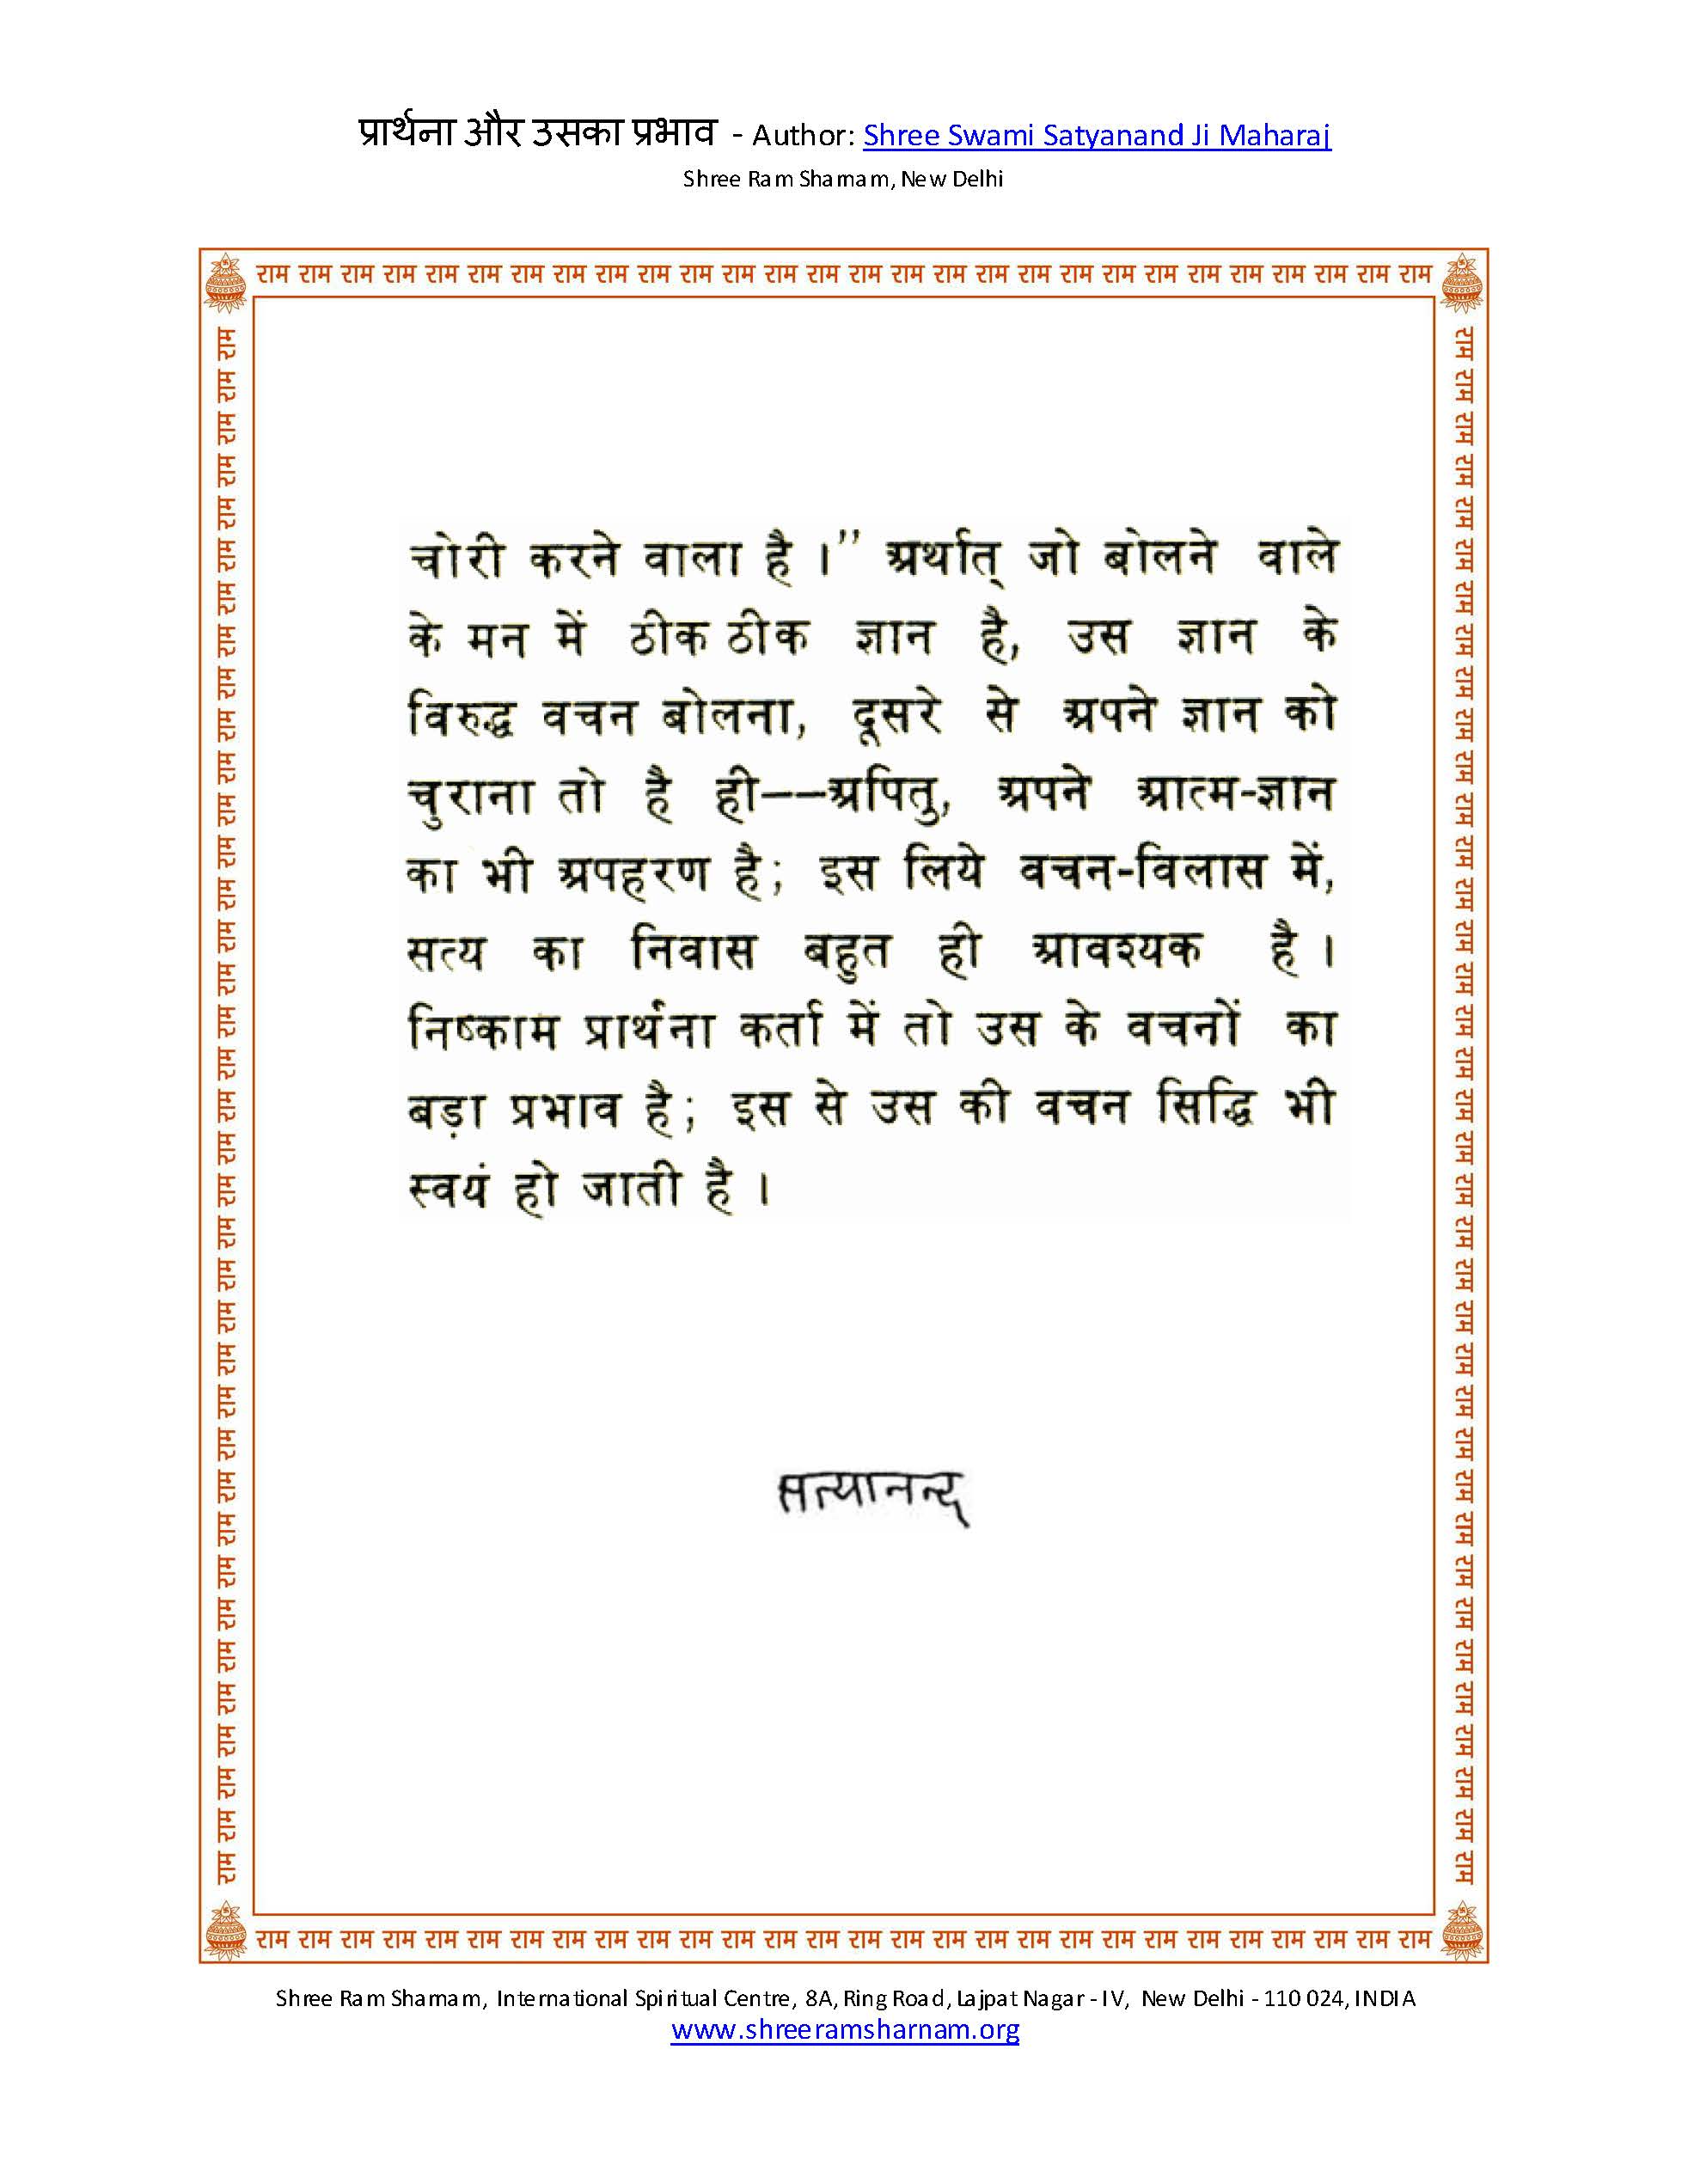 प्रार्थना और उसका प्रभाव - Author: Shree Swami Satyanand Ji Maharaj
Shree Ram Sharnam, New Delhi
राम राम राम राम राम राम राम राम राम राम राम राम राम राम राम राम राम राम राम राम राम राम राम राम राम राम राम राम
चोरी करने वाला है ।” अर्थात् जो बोलने वाले
के मन में ठीक ठीक ज्ञान है, उस ज्ञान के
विरुद्ध वचन बोलना, दूसरे से अपने ज्ञान को
चुराना तो है ही——अपितु, अपने आत्म-ज्ञान
का भी अपहरण है; इस लिये वचन-विलास में,
सत्य का निवास बहुत ही आवश्यक है ।
निष्काम प्रार्थना कर्ता में तो उस के वचनों का
बड़ा प्रभाव है; इस से उस की वचन सिद्धि भी
स्वयं हो जाती है ।
सत्यानन्द
राम राम राम राम राम राम राम राम राम राम राम राम राम राम राम राम राम राम राम राम राम राम राम राम राम राम राम राम
राम राम राम राम राम राम राम राम राम राम राम राम राम राम राम राम राम राम राम राम राम राम राम राम राम राम राम राम राम राम राम राम राम राम राम राम राम
राम राम राम राम राम राम राम राम राम राम राम राम राम राम राम राम राम राम राम राम राम राम राम राम राम राम राम राम राम राम राम राम राम राम राम राम राम
Shree Ram Sharnam, International Spiritual Centre, 8A, Ring Road, Lajpat Nagar - IV, New Delhi - 110 024, INDIA
www.shreeramsharnam.org